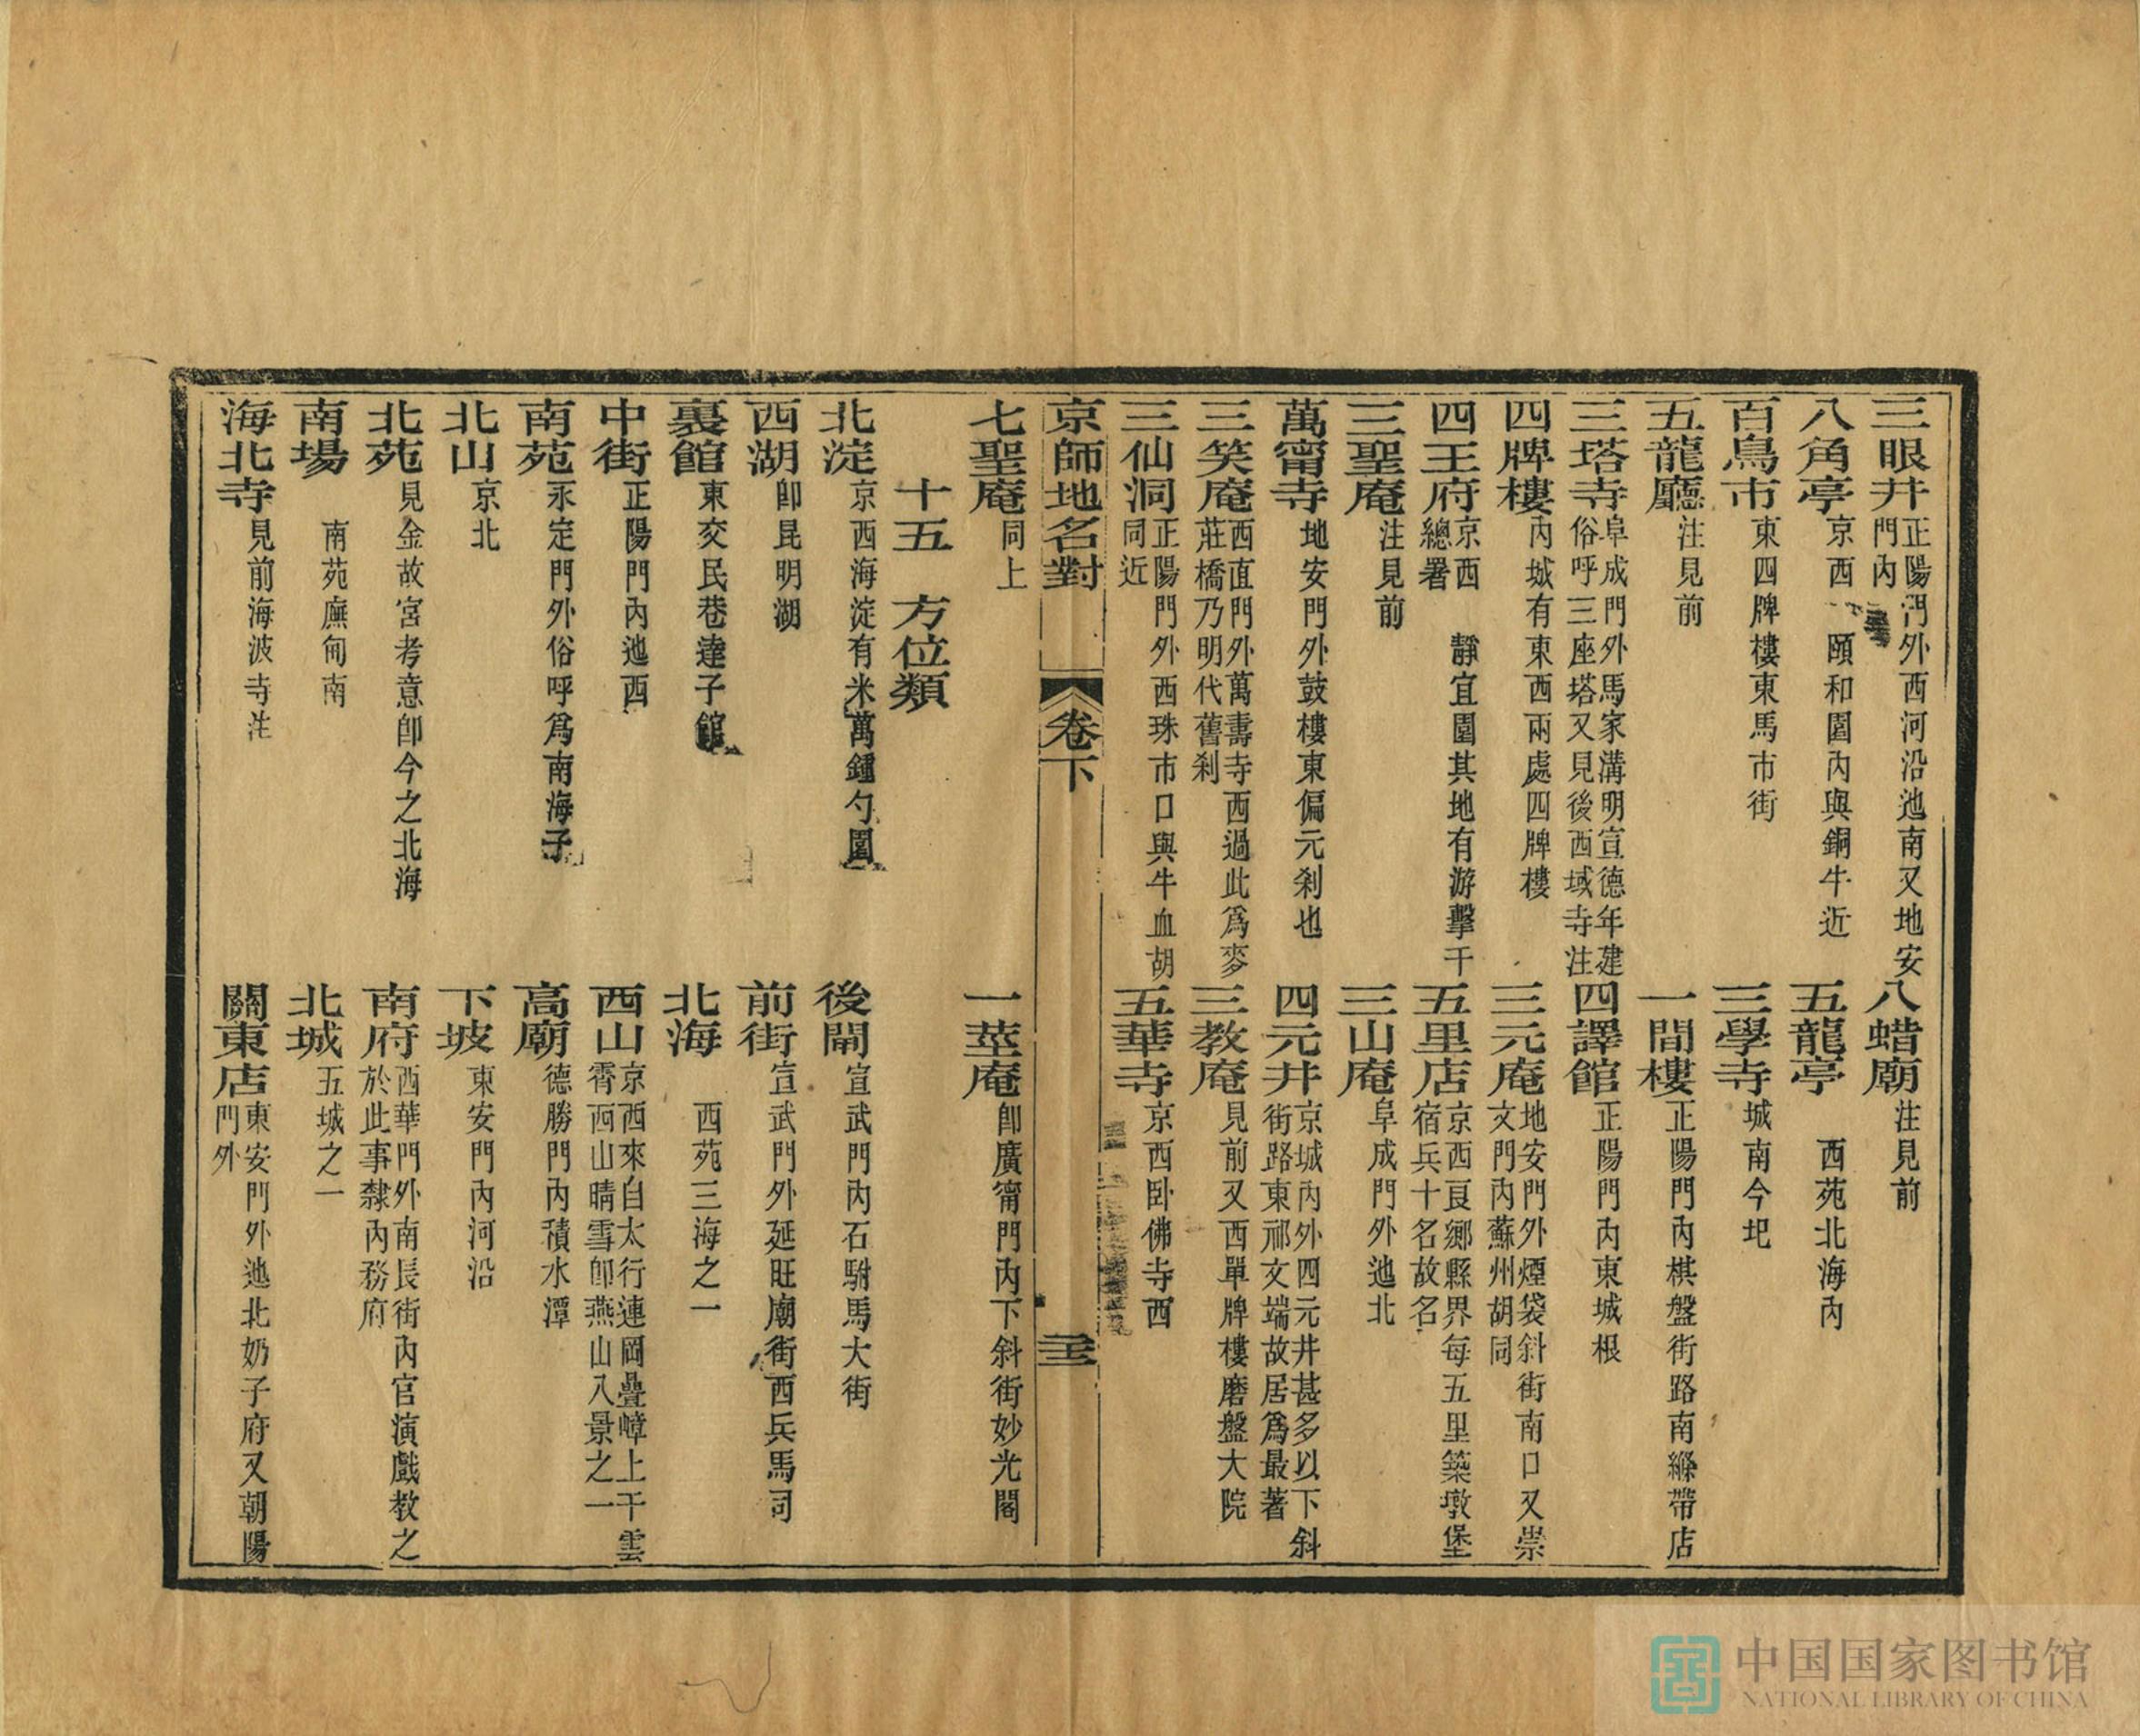 三眼井正陽門外西河沿池南又地安門內 八蜡廟注見前
八角亭京西 頤和園內與銅牛近 五龍亭 西苑北海內
百鳥市東四牌樓東馬市街 三學寺城南今圮
五龍廳注見前 一間樓正陽門內棋盤街路南縧帶店
三塔寺阜成門外馬家溝明宣德年建俗呼三座塔又見後西域寺注 四譯館正陽門內東城根
四牌樓內城有東西兩處四牌樓 三元庵地安門外煙袋斜街南口又崇文門內蘇州胡同
四王府京西 靜宜園其地有游擊千總署 五里店京西良鄉縣界每五里築墩堡宿兵十名故名
三聖庵注見前 三山庵阜成門外池北
萬甯寺地安門外鼓樓東偏元刹也 四元井京城內外四元井甚多以下斜街路東祁文端故居爲最著
三笑庵西直門外萬壽寺西過此爲麥莊橋乃明代舊刹 三教庵見前又西單牌樓磨盤大院
三仙洞正陽門外西珠市口與牛血胡同近 五華寺京西卧佛寺西
京師地名對 卷下 三五
七聖庵同上 一莖庵卽廣甯門內下斜街妙光閣
十五 方位類
北淀京西海淀有米萬鍾勺園 後閘宣武門內石駙馬大街
西湖卽昆明湖 前街宣武門外延旺廟街西兵馬司
裏館東交民巷達子館 北海 西苑三海之一
中街正陽門內池西 西山京西來自太行連岡疊嶂上干雲霄西山晴雪卽燕山八景之一
南苑永定門外俗呼爲南海子 高廟德勝門內積水潭
北山京北 下坡東安門內河沿
北苑見金故宮考意卽今之北海 南府西華門外南長街內官演戲教之於此事隸內務府
南場 南苑廡甸南 北城五城之一
海北寺見前海波寺注 關東店東安門外池北奶子府又朝陽門外
中国国家图书馆
NATIONAL LIBRARY OF CHINA